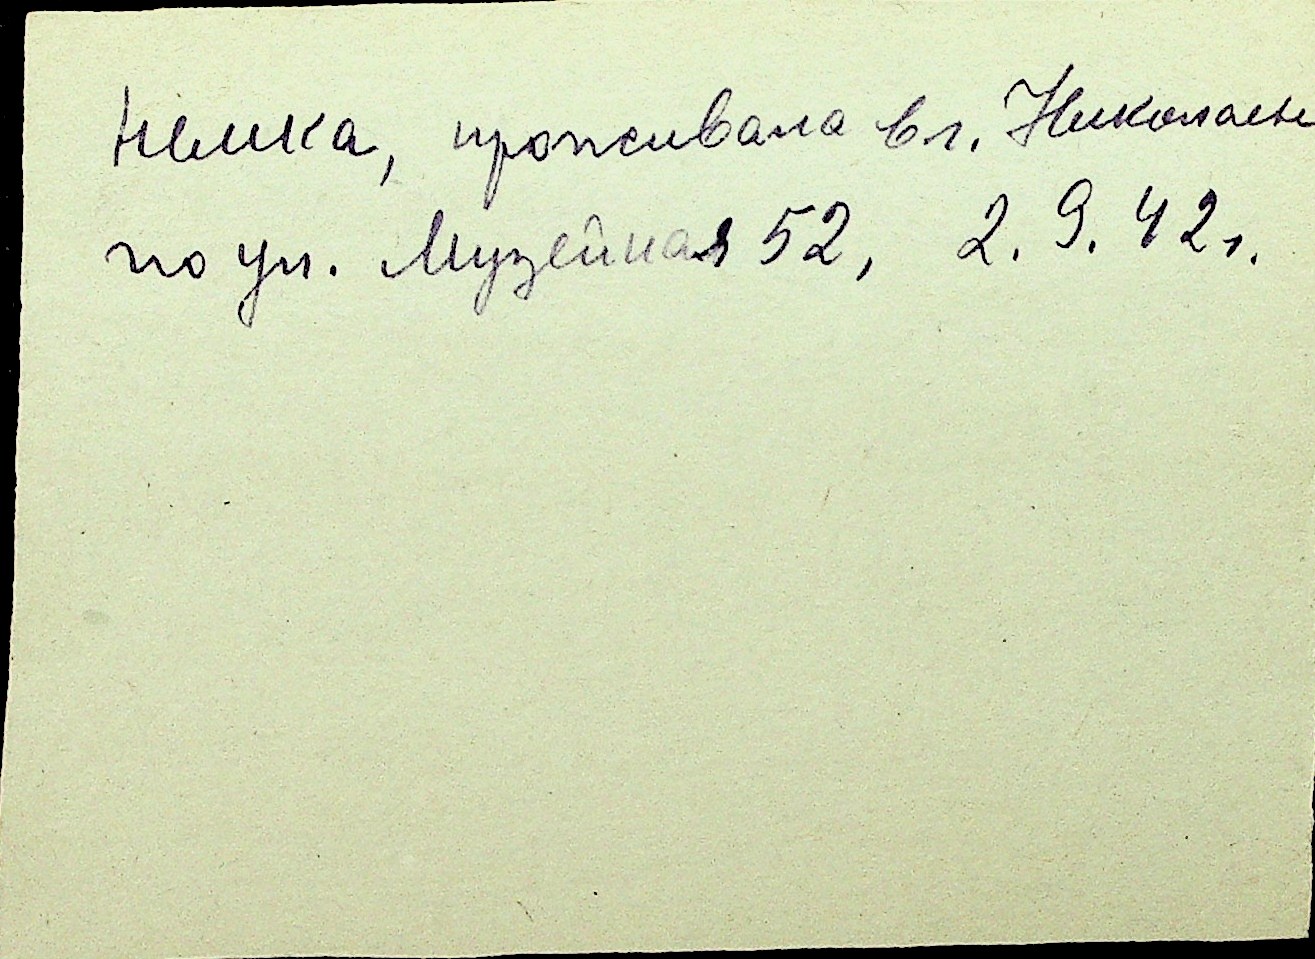 немка, проживала в г. Николаеве
по ул. Музейная 52, 2.9.42г.